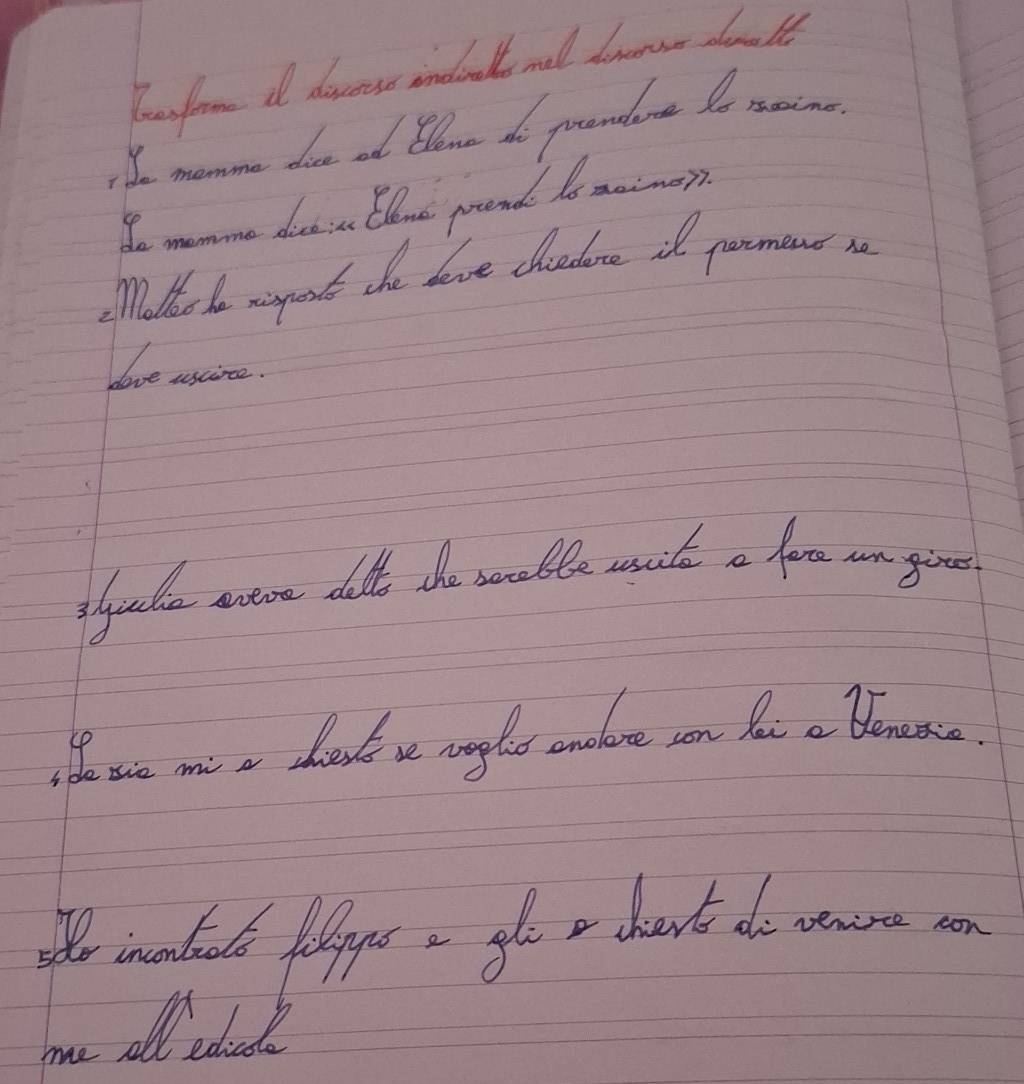 Trasforma il discorso indiretto nel discorso diretto
1 La mamma dice ad Elena di prendere lo zaino.
La mamma dice: << Elena prendi lo zaino>>.
2 Matteo ha risposto che deve chiedere il permesso se
deve uscire.
3 Giulia aveva detto che sarebbe uscita a fare un giro.
4 La zia mi a chiesto se voglio andare con lei a Venezia.
5 Ho incontrato filippo e gli o chiesto di venire con
me all'edicola